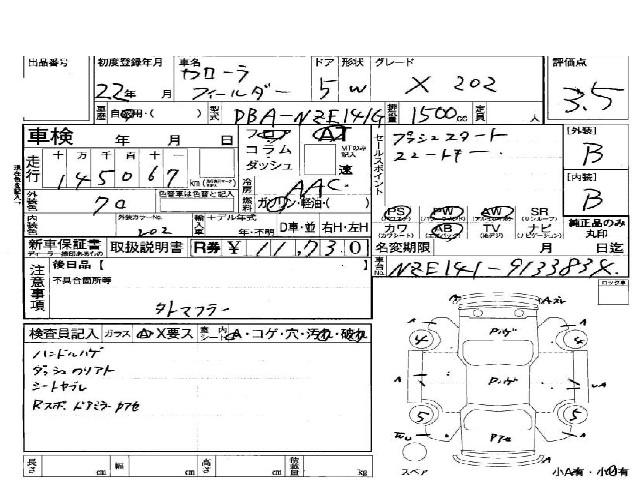 出品番号 初度登録年月 車名 ドア 形状 グレード 評価点
22年 月 カローラ フィールダー 5 W X 202 3.5
車歴 自家用・( ) 型式 DBA-NZE141G 排気量 1500cc 定員 人
車検 年 月 日 フロア コラム ダッシュ AT 速 セールスポイント プッシュスタート スマートキー [外装] B
走行 十 万 千 百 十 一 145067 km 冷房 AAC [内装] B
外装色 70 色替車は色替と記入 燃料 ガソリン・軽油・( ) PS PW AW SR
内装色 外装カラーNo. 202 輸入車 モデル年式 年・不明 D車・並 右H・左H カワ AB TV ナビ 純正品のみ丸印
新車保証書 取扱説明書 R券 ¥ 11,730 名変期限 月 日迄
注意事項 後日品【 】 車台No. NZE141-9133834 ロック車
不具合箇所等
タトマフラー
検査員記入 ガラス A・X要ス 室内 シート A・コゲ・穴・汚れ・破れ
ハンドルハゲ
ダッシュ
シートヤブレ
Rスポ ドアミラー
4 4
5 5
長さ cm 幅 cm 高さ cm 積載量 kg スペア 小A有・小U有